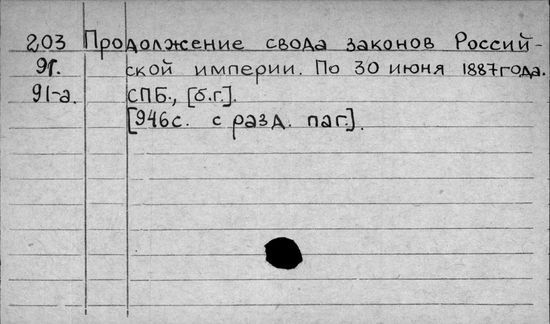 203 Продолжение свода законов Россий-
9г. ской империи. По 30 июня 1887 года.
91-а. СПБ., [б.г.].
[946с. с разд. паг.].